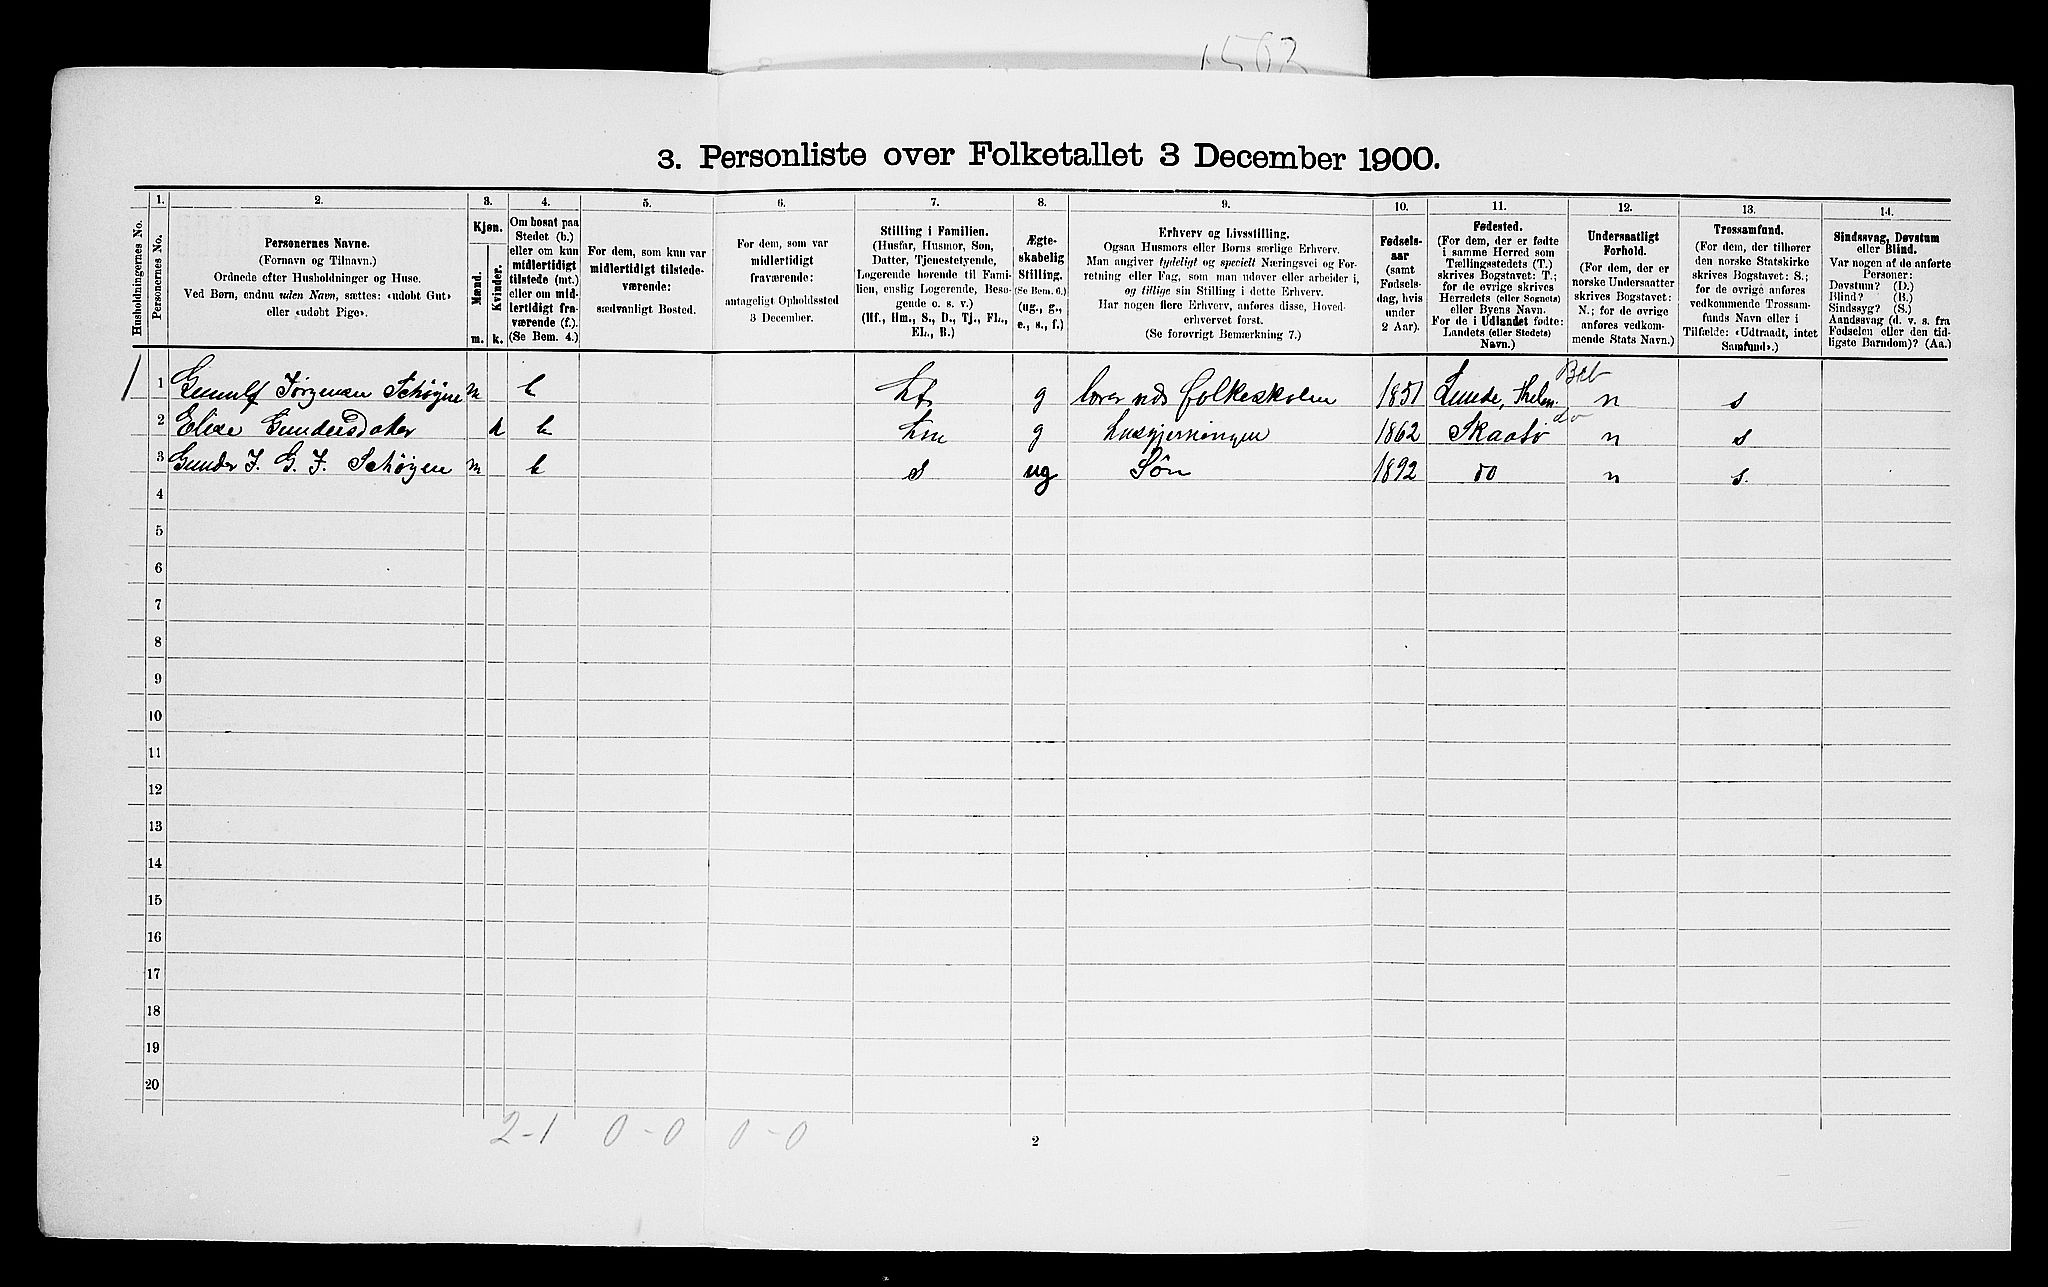 1563
3. Personliste over Folketallet 3 December 1900.
1. 2. 3. 4. 5. 6. 7. 8. 9. 10. 11. 12. 13. 14.
Husholdningernes No.
Personernes No.
Personernes Navne.
(Fornavn og Tilnavn.)
Ordnede efter Husholdninger og Huse.
Ved Børn, endnu uden Navn, sættes: «udøbt Gut»
eller «udøbt Pige».
Kjøn.
Mænd.
Kvinder.
m. k.
Om bosat paa
Stedet (b.)
eller om kun
midlertidigt
tilstede (mt.)
eller om mid-
lertidigt fra-
værende (f.).
(Se Bem. 4.)
For dem, som kun var
midlertidigt tilstede-
værende:
sædvanligt Bosted.
For dem, som var
midlertidigt
fraværende:
antageligt Opholdssted
3 December.
Stilling i Familien.
(Husfar, Husmor, Søn,
Datter, Tjenestetyende,
Logerende hørende til Fami-
lien, enslig Logerende, Besø-
gende o. s. v.)
(Hf., Hm., S., D., Tj., FL.,
EL., B.)
Ægte-
skabelig
Stilling.
(Se Bem. 6.)
(ug., g.,
e., s., f.)
Erhverv og Livsstilling.
Ogsaa Husmors eller Børns særlige Erhverv.
Man angiver tydeligt og specielt Næringsvei og For-
retning eller Fag, som man udøver eller arbeider i,
og tillige sin Stilling i dette Erhverv.
Har nogen flere Erhverv, anføres disse, Hoved-
erhvervet først.
(Se forøvrigt Bemærkning 7.)
Fødsels-
aar
(samt
Fødsels-
dag, hvis
under
2 Aar).
Fødested.
(For dem, der er fødte
i samme Herred som
Tællingsstedets (T.)
skrives Bogstavet: T.;
for de øvrige skrives
Herredets (eller Sognets)
eller Byens Navn.
For de i Udlandet fødte:
Landets (eller Stedets)
Navn.)
Undersaatligt
Forhold.
(For dem, der er
norske Undersaatter
skrives Bogstavet:
N.; for de øvrige
anføres vedkom-
mende Stats Navn.)
Trossamfund.
(For dem, der tilhører
den norske Statskirke
skrives Bogstavet: S.;
for de øvrige anføres
vedkommende Trossam-
funds Navn eller i
Tilfælde: «Udtraadt, intet
Samfund».)
Sindssvag, Døvstum
eller Blind.
Var nogen af de anførte
Personer:
Døvstum? (D.)
Blind? (B.)
Sindssyg? (S.)
Aandssvag (d. v. s. fra
Fødselen eller den tid-
ligste Barndom)? (Aa.)
Bcb
1 1 Gunulf Jørgensen Schøyne m b hf g lærer ved folkeskolen 1851 Lunde, Thelm. n s
do
2 Elise Gundersdatter k b hm g husgjerningen 1862 Skaatø n s
3 Gunder J. G. J. Schøyen m b s ug Søn 1892 do n s.
4
5
6
7
8
9
10
11
12
13
14
15
16
17
18
19
20
2-1 0-0 0-0
2